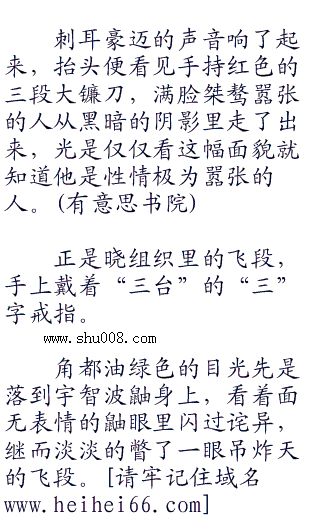 刺耳豪迈的声音响了起
来，抬头便看见手持红色的
三段大镰刀，满脸桀骜嚣张
的人从黑暗的阴影里走了出
来，光是仅仅看这幅面貌就
知道他是性情极为嚣张的
人。(有意思书院)
正是晓组织里的飞段，
手上戴着“三台”的“三”
字戒指。
www.shu008.com
角都油绿色的目光先是
落到宇智波鼬身上，看着面
无表情的鼬眼里闪过诧异，
继而淡淡的瞥了一眼吊炸天
的飞段。[请牢记住域名
www.heihei66.com]